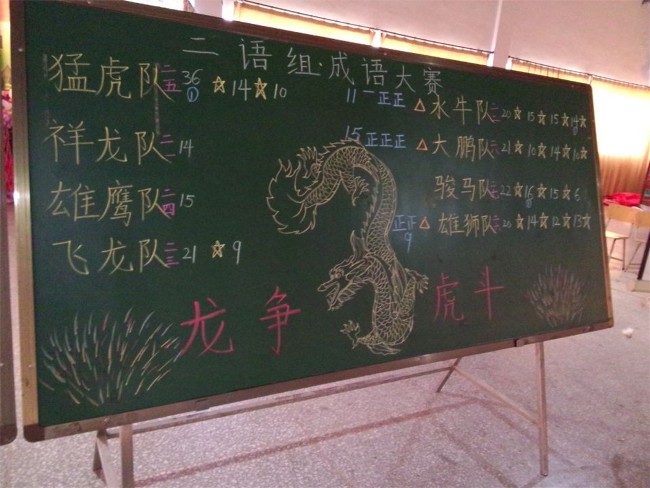 二语组·成语大赛
猛虎队 二五 36 ① ☆ 14 ☆ 10
祥龙队 二一 14
雄鹰队 二四 15
飞龙队 二三 21 ☆ 9
11 一正正 △ 水牛队 20 ☆ 15 ☆ 15 ☆ 14 ☆
15 正正正 △ 大鹏队 21 ☆ 10 ☆ 14 ☆ 10 ☆
骏马队 22 ☆ 16 ☆ 15 ☆ 6
正正 9 △ 雄狮队 20 ☆ 14 ☆ 12 ☆ 13 ☆
龙争 虎斗